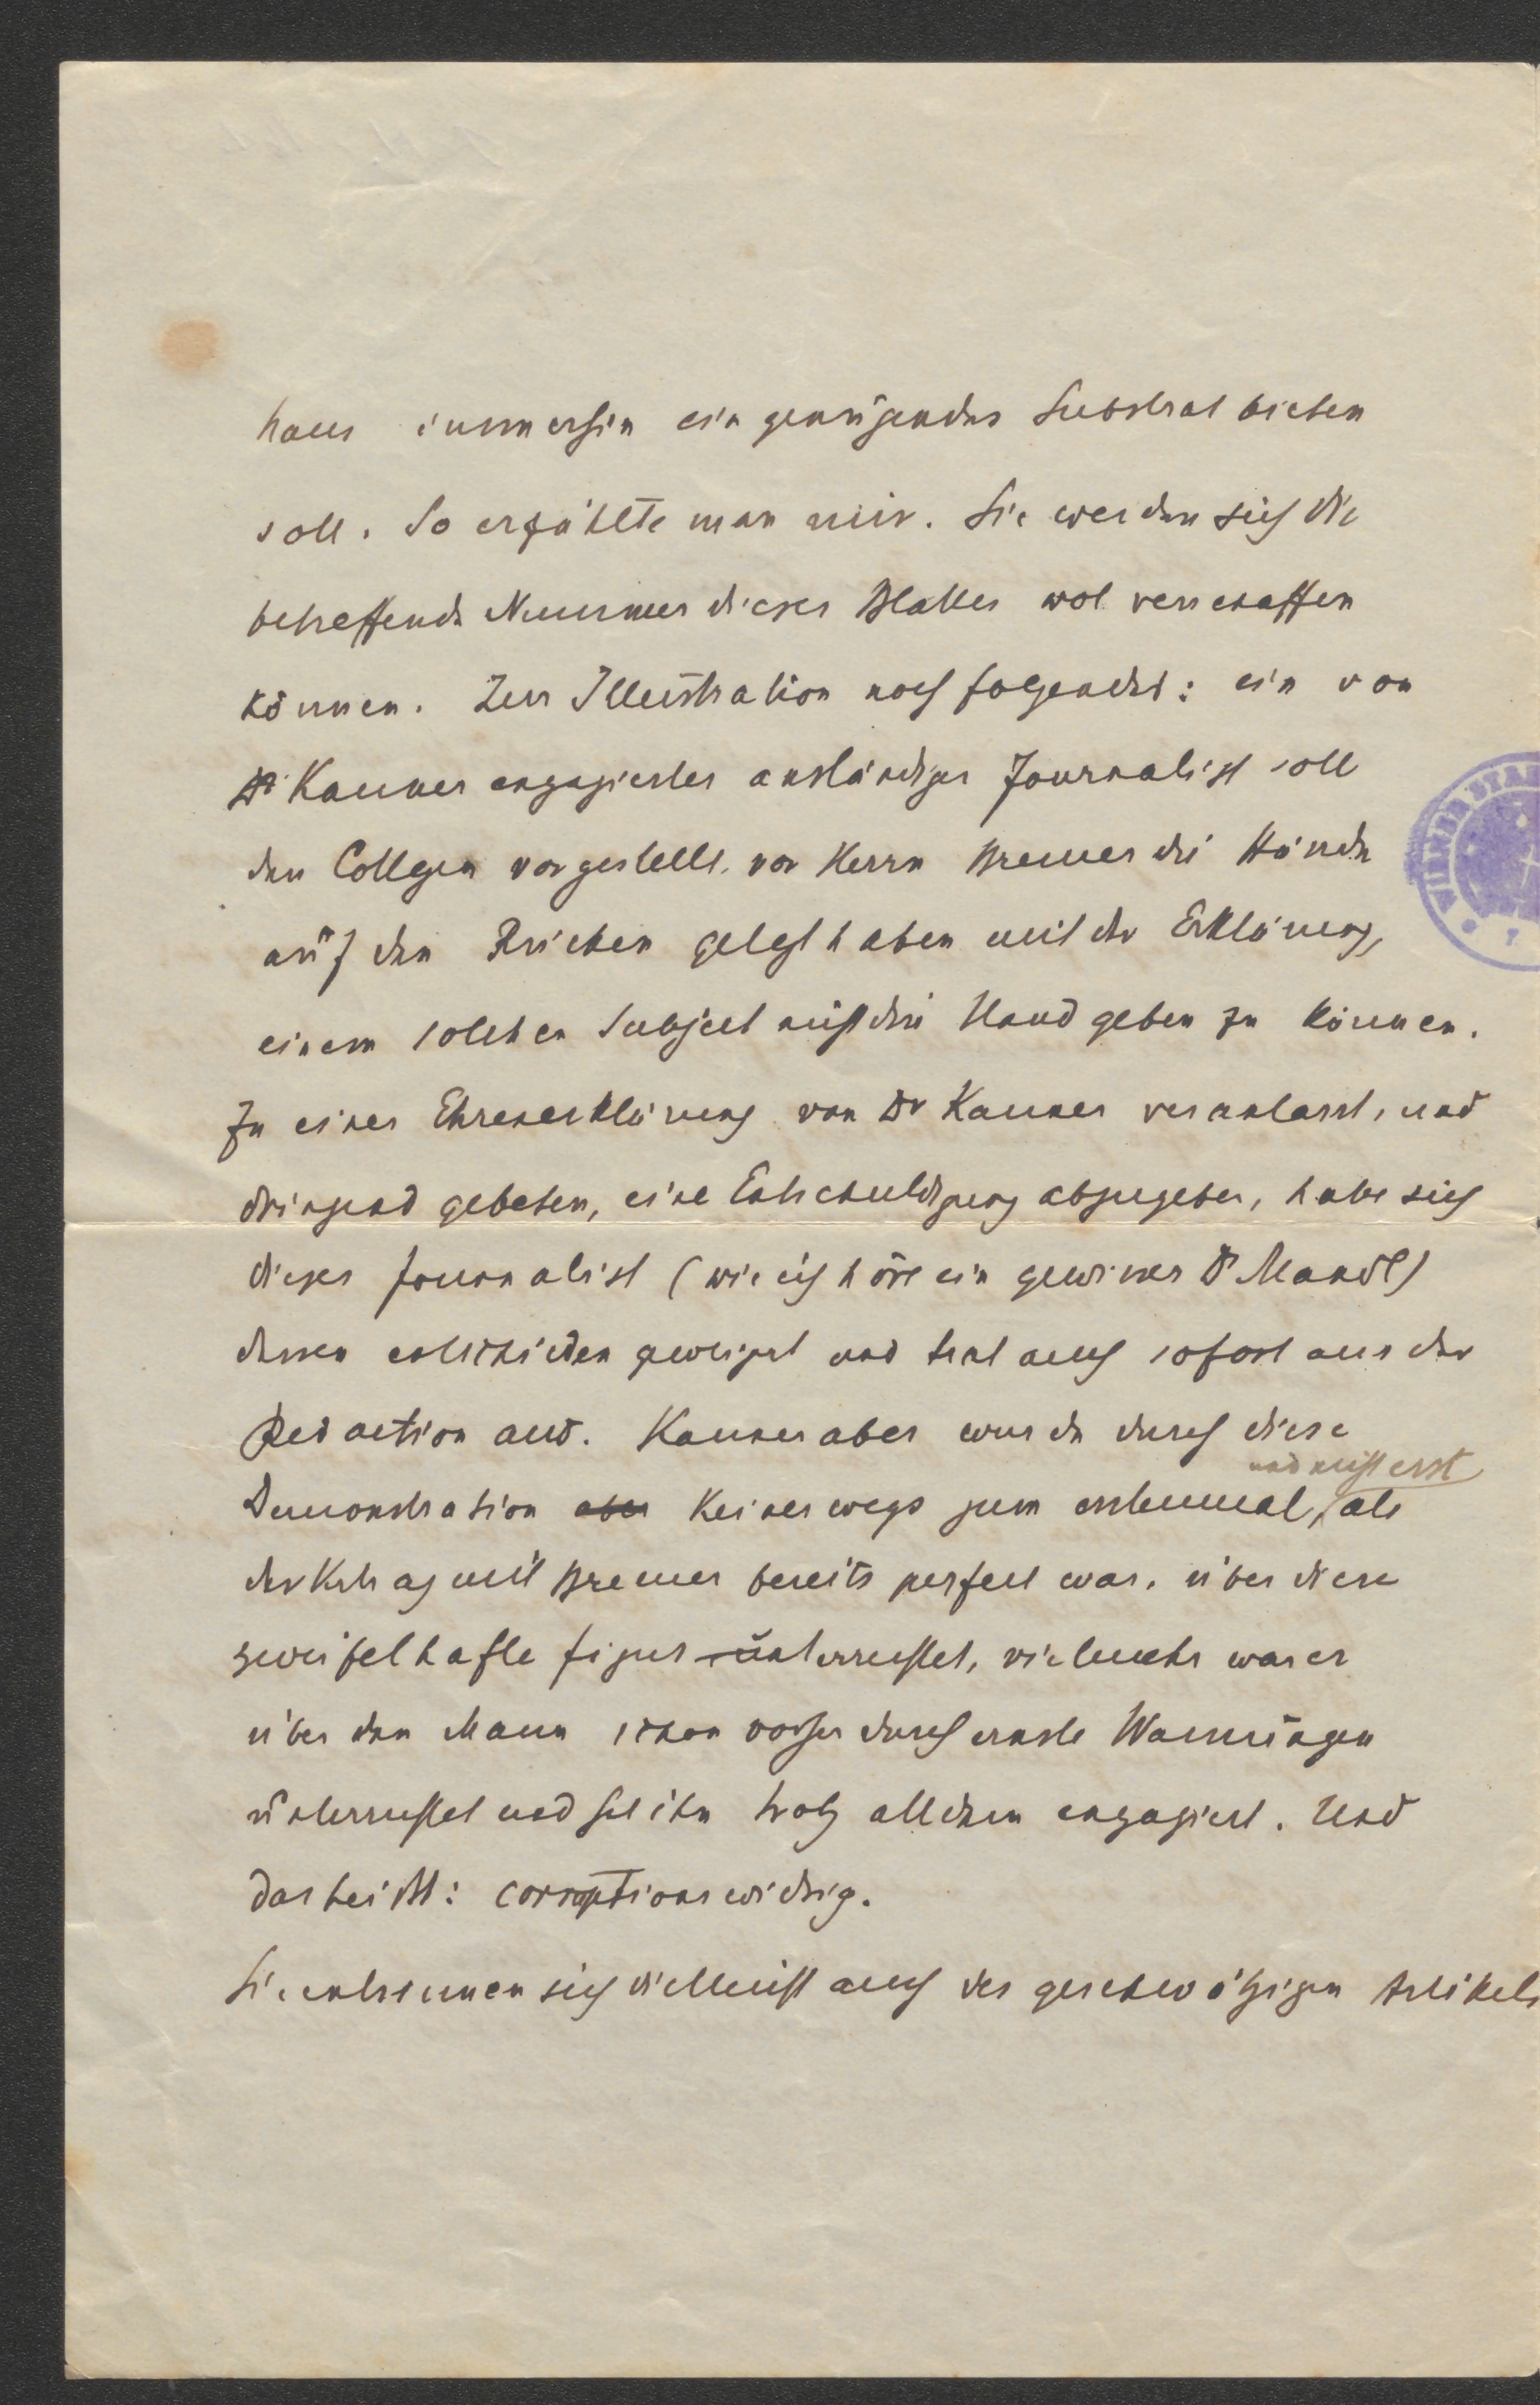 haus immerhin ein genügendes Substrat bieten
soll. So erzählte man mir. Sie werden sich die
betreffende Nummer dieses Blattes wol verschaffen
können. Zur Illustration noch folgendes: ein von
Dr Kanner engagierter anständiger Journalist soll
den Collegen vorgestellt, vor Herrn Bremer die Hände
auf den Rücken gelegt haben mit der Erklärung,
einem solchen Subject nicht die Hand geben zu können.
Zu einer Ehrenerklärung von Dr Kanner veranlasst, und
dringend gebeten, eine Entschuldigung abzugeben, habe sich
dieser Journalist (wie ich höre ein gewisser Dr Mandl)
dessen entschieden geweigert und trat auch sofort aus der
Redaction aus. Kanner aber wurde durch diese
und nicht erst
Demonstration aber keineswegs zum erstenmal, als
der Vertrag mit Bremer bereits perfect war, über diese
zweifelhafte Figur unterrichtet, vielmehr war er
über den Mann schon vorher durch ernste Warnungen
unterrichtet und hat ihn trotz alldem engagiert. Und
das heißt: corruptionswidrig.
Sie entsinnen sich vielleicht auch des geschwätzigen Artikels
WIENER STA